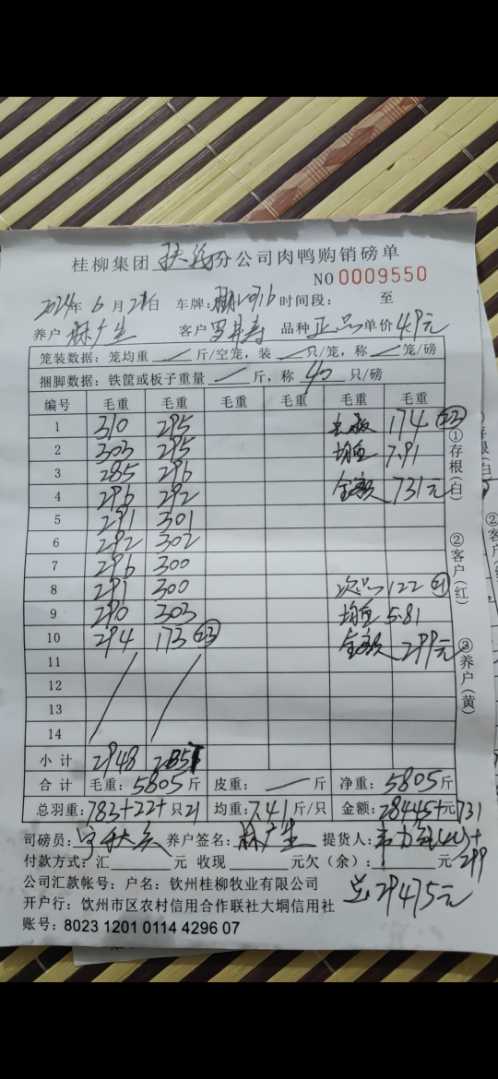 桂柳集团 扶绥分公司肉鸭购销磅单
NO 0009550
2024年 6 月 21日 车牌: 时间段: 至
养户 林广生 客户 罗井寿 品种 正品 单价 4.9元
笼装数据: 笼均重 / 斤/空笼, 装 / 只/笼, 称 / 笼/磅
捆脚数据: 铁筐或板子重量 / 斤, 称 40 只/磅
编号 毛重 毛重 毛重 毛重 毛重 毛重
1 310 295 174 (23)
2 303 295 均重 7.91
3 285 296 金额 731元
4 296 292
5 291 301
6 292 302
7 296 300
8 291 300 次品 122 (21)
9 290 303 均重 5.81
10 294 173 (23) 金额 299元
11
12
13
14
小计 2948 2857
合计 毛重: 5805 斤 皮重: / 斤 净重: 5805 斤
总羽重: 783+22+ 只 21 均重: 7.41 斤/只 金额: 28445+ 元 731
司磅员: 养户签名: 林广生 提货人: + 299
付款方式: 汇 元 收现 元欠(余): 元
公司汇款帐号: 户名: 钦州桂柳牧业有限公司
总29475元
开户行: 钦州市区农村信用合作联社大垌信用社
账号: 8023 1201 0114 4296 07
①存根(白)
②客户(红)
③养户(黄)